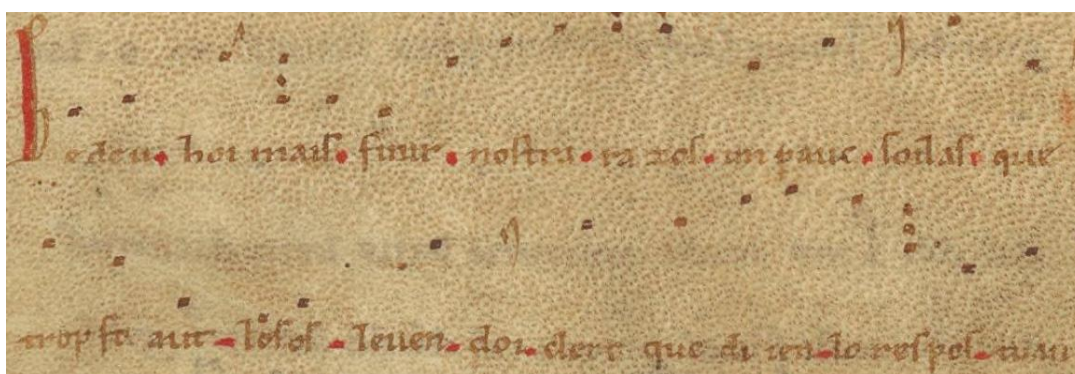 Be deu. hoi mais. finir. nostra. ra zos. un pauc. soi las. que
trop fo aut lo sos. leven. doi. clerc que di ien. lo respos. tuau